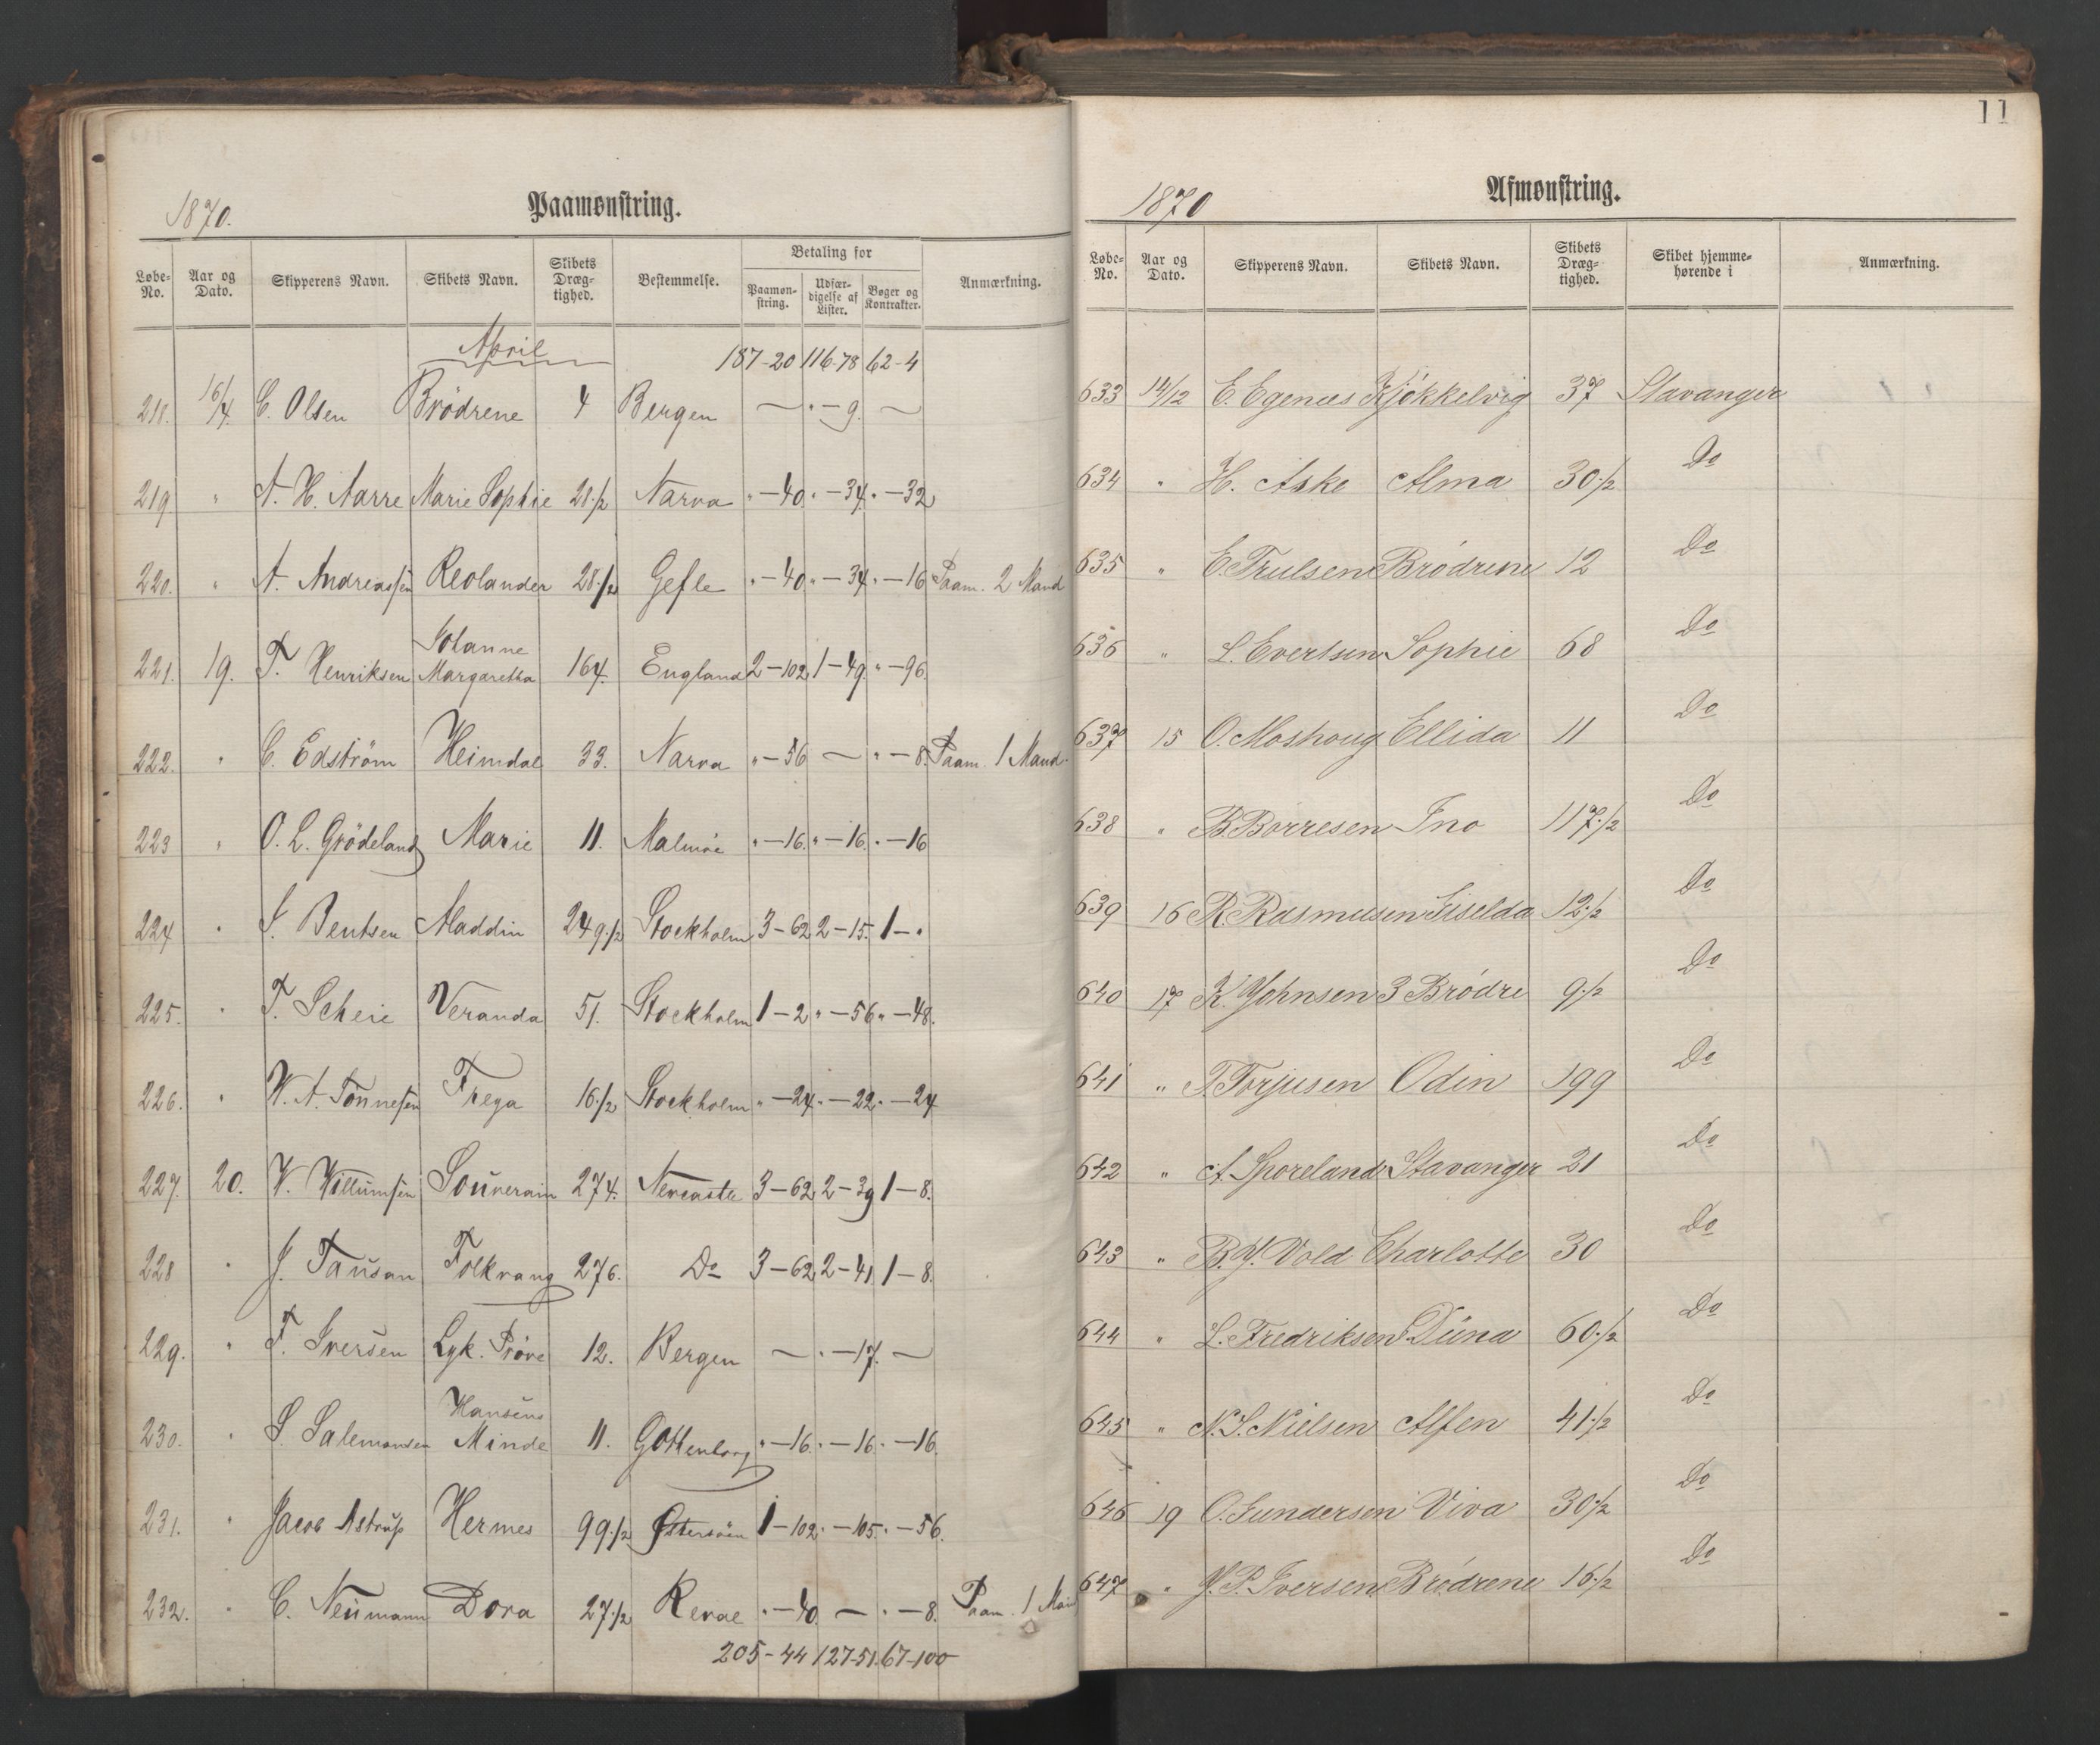 1870.
Paamønstring.
Løbe-No. Aar og Dato. Skipperens Navn. Skibets Navn. Skibets Dræg-tighed. Bestemmelse. Betaling for Paamøn-string. Udfær-digelse af Lister. Bøger og Kontrakter. Anmærkning.
April 187-20 116-78 62-4
218. 16/4. C. Olsen Brödrene 4 Bergen — " - 9. —
219 " A. H. Aarre Marie Sophie 28 1/2 Narva " - 40. " - 34. " - 32
220. " A. Andreassen Reolander 28 1/2 Gefle " - 40. " - 34. " - 16 Paam. 2 Mand
221. 19. T. Henriksen Johanne Margaretha 164. England 2 - 102 1 - 49. " - 96.
222. " C. Edström Heimdal 33. Narva " - 56 — " - 8. Paam. 1 Mand.
223 " O. L. Grödeland Marie 11. Malmöe " - 16. " - 16. " - 16
224 " S. Bentsen Aladdin 249 1/2 Stockholm 3 - 62 2 - 15. 1 - "
225. " T. Scheie Veranda 51. Stockholm 1 - 2 " - 56 " - 48.
226. " W. A. Tönnesen Freya 16 1/2 Stockholm " - 24. " - 22. " - 24
227. 20. W. Willumsen Souverain 274. Newcastle 3 - 62 2 - 39 1 - 8.
228 " J. Tausan Folkvang 276. Do 3 - 62 2 - 41. 1 - 8.
229. " T. Iversen Lyk. Pröve 12. Bergen — " - 17. —
230. " S. Salemonsen Hansens Minde 11. Gottenborg " - 16. " - 16. " - 16.
231. " Jacob Astrup Hermes 99 1/2 Östersöen 1 - 102. " - 105. " - 56.
232. " C. Neumann Dora 27 1/2 Reval " - 40. — " - 8. Paam. 1 Man
205-44 127-51. 67-100
11
1870
Afmønstring.
Løbe-No. Aar og Dato. Skipperens Navn. Skibets Navn. Skibets Dræg-tighed. Skibet hjemme-hørende i Anmærkning.
633 14/12 E. Egenæs Kjökkelvig 37 Stavanger
634 " H. Aske Alma 30 1/2 Do
635 " E. Trulsen Brödrene 12 Do
636 " L. Evertsen Sophie 68 Do
637 15 O. Moshoug Ellida 11 Do
638 " B. Borresen Ino 117 1/2 Do
639 16 R. Rasmusen Giselda 12 1/2 Do
640 17 K. Johnsen 3 Brödre 9 1/2 Do
641 " T. Torjusen Odin 199 Do
642 " A. Sporeland Stavanger 21 Do
643 " B. J. Vold Charlotte 30 Do
644 " L. Fredriksen Düna 60 1/2 Do
645 " N. S. Nielsen Alfen 41 1/2 Do
646 19 O. Gundersen Viva 30 1/2 Do
647 " J. P. Iversen Brödrene 16 1/2 Do